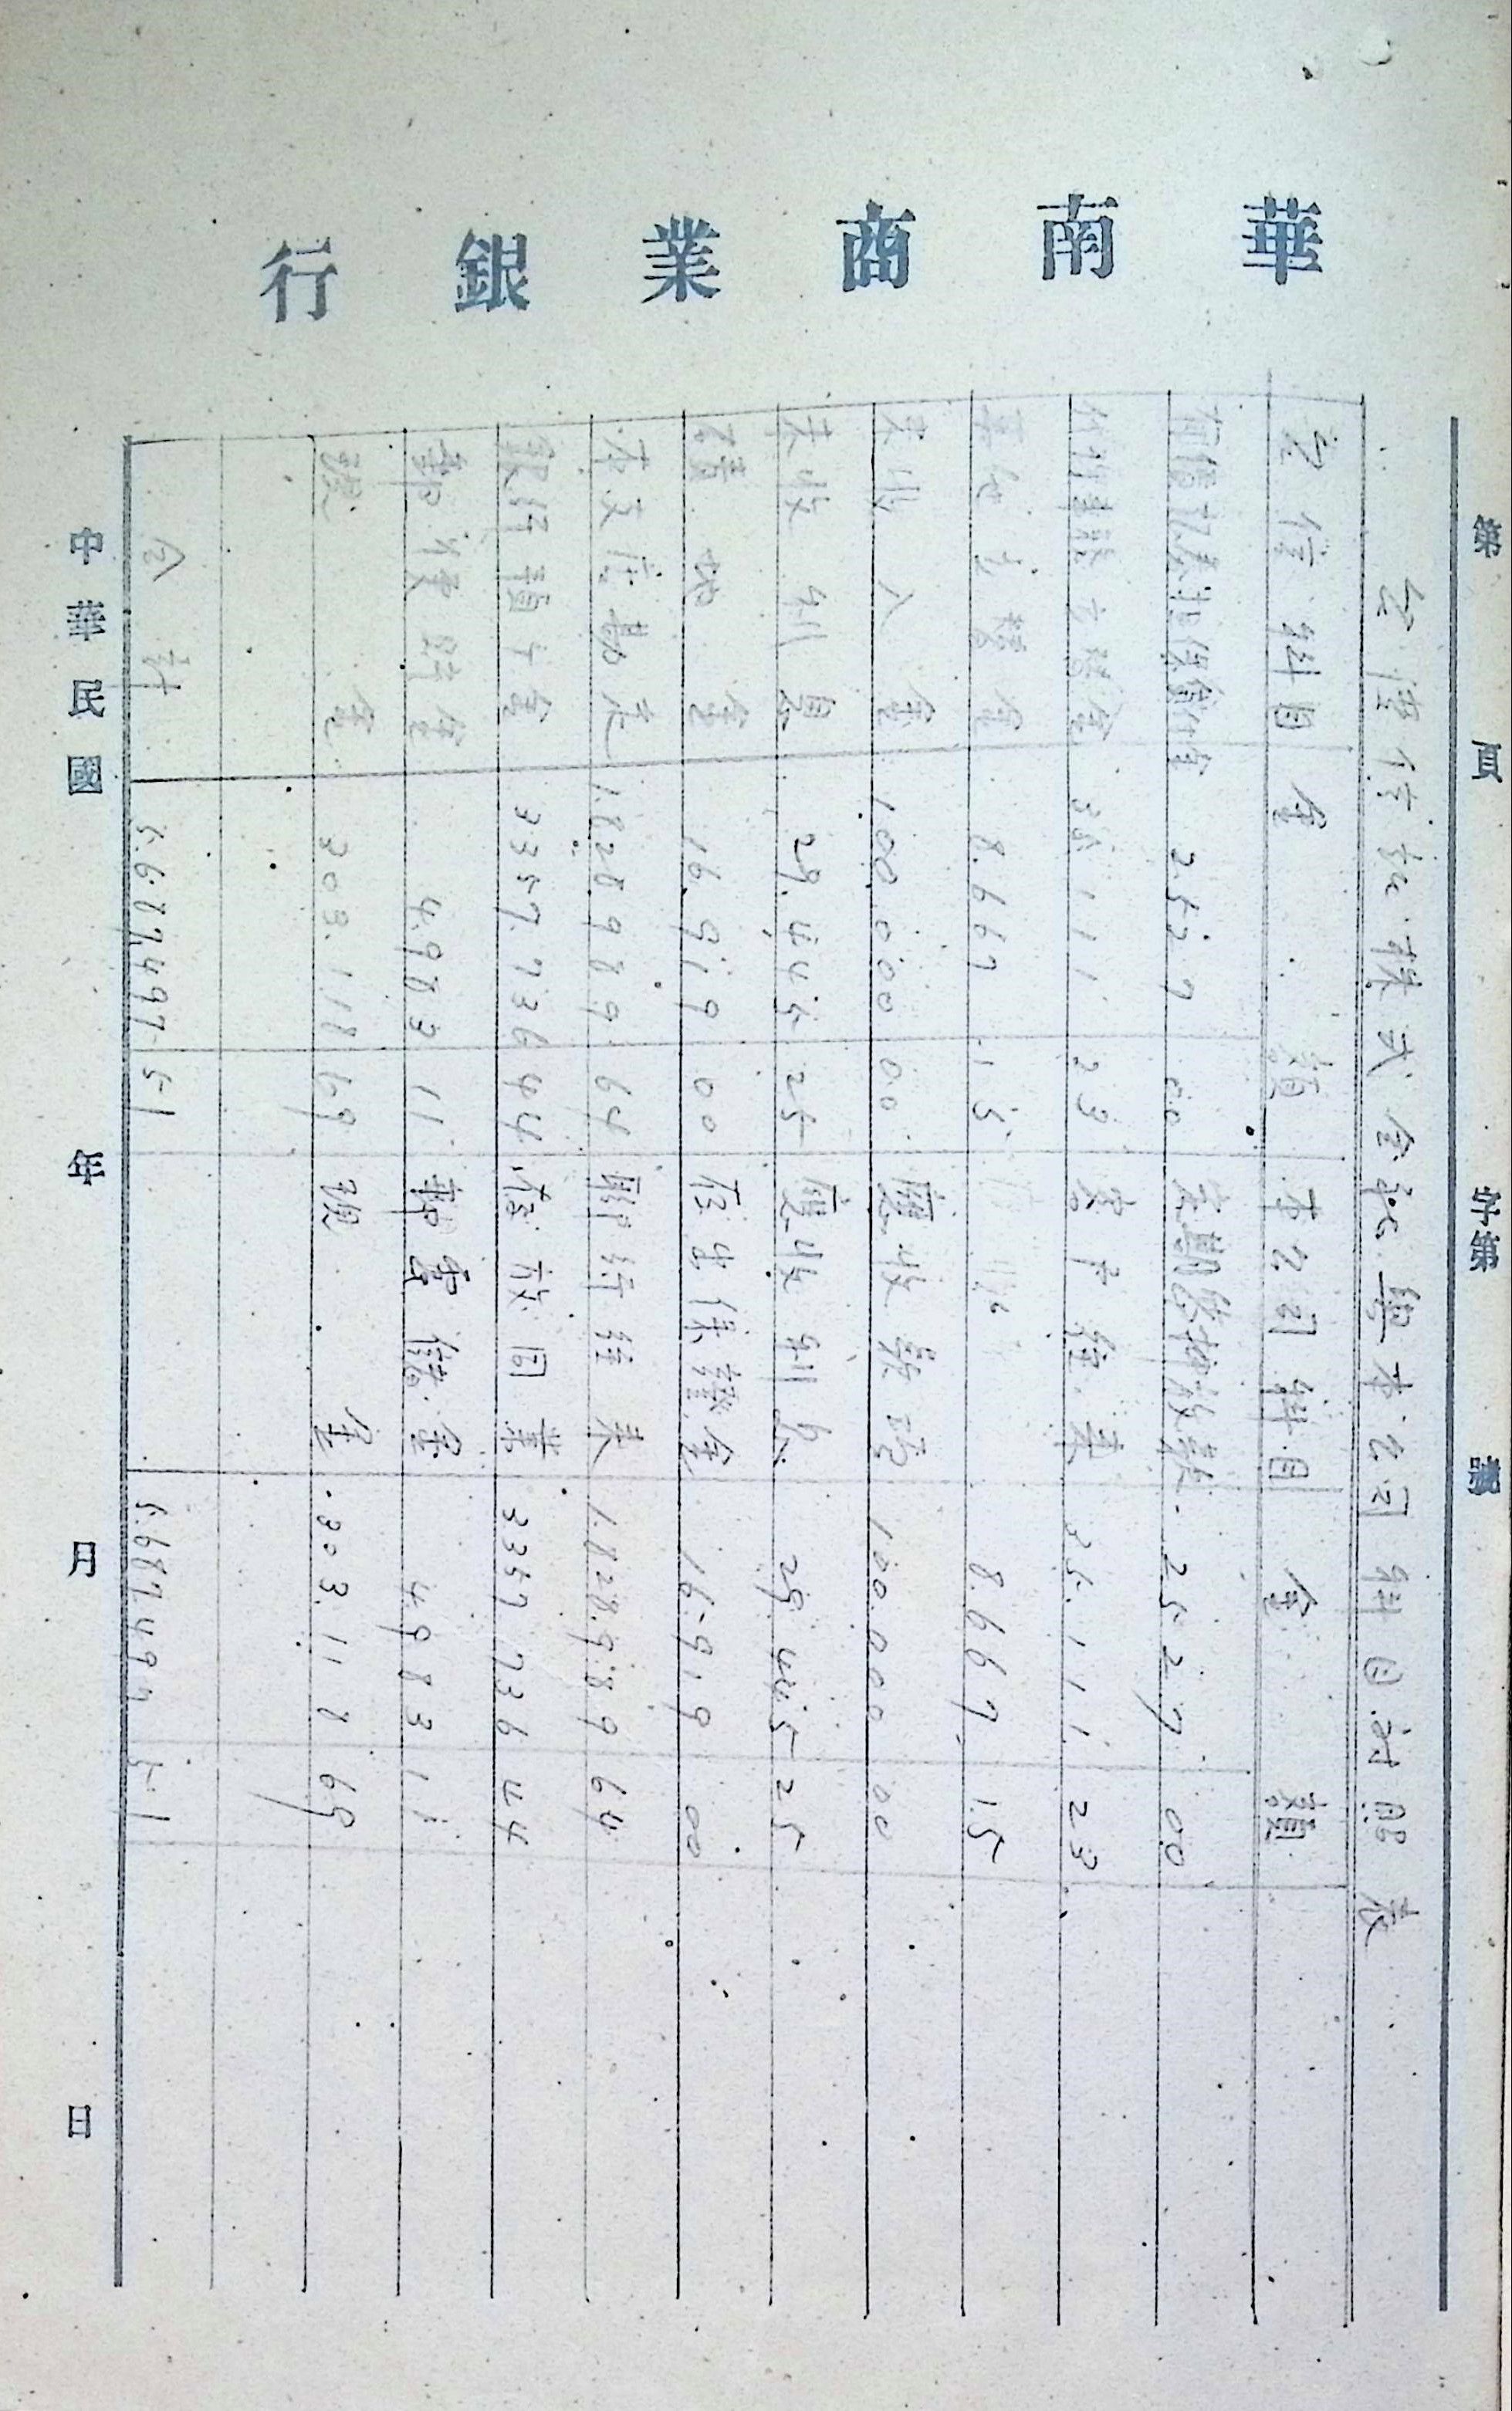 華南商業銀行
第 頁 字第 號
台灣信託株式會社與本公司科目對照表
台信科目 金額 本公司科目 金額
有價証券担保貸付金 2.527 00 定期抵押放款 2527 00
35.111 23 35.111 23
8.667 15 8.667 15
未收入金 100.000 00 應收款項 100.000 00
未收利息 29.445 25 應收利息 29.445 25
積 金 16.919 00 存出保證金 16.919 00
本支店勘定 1.828.989 64 聯行往來 1.828.989 64
銀行預ケ金 3357.736 44 存放同業 3357.736 44
郵便貯金 4.983 11 郵電儲金 4983 11
現金 303.118 69 現金 303.118 69
合計 5.687.497 51 5.687.497 51
中華民國 年 月 日